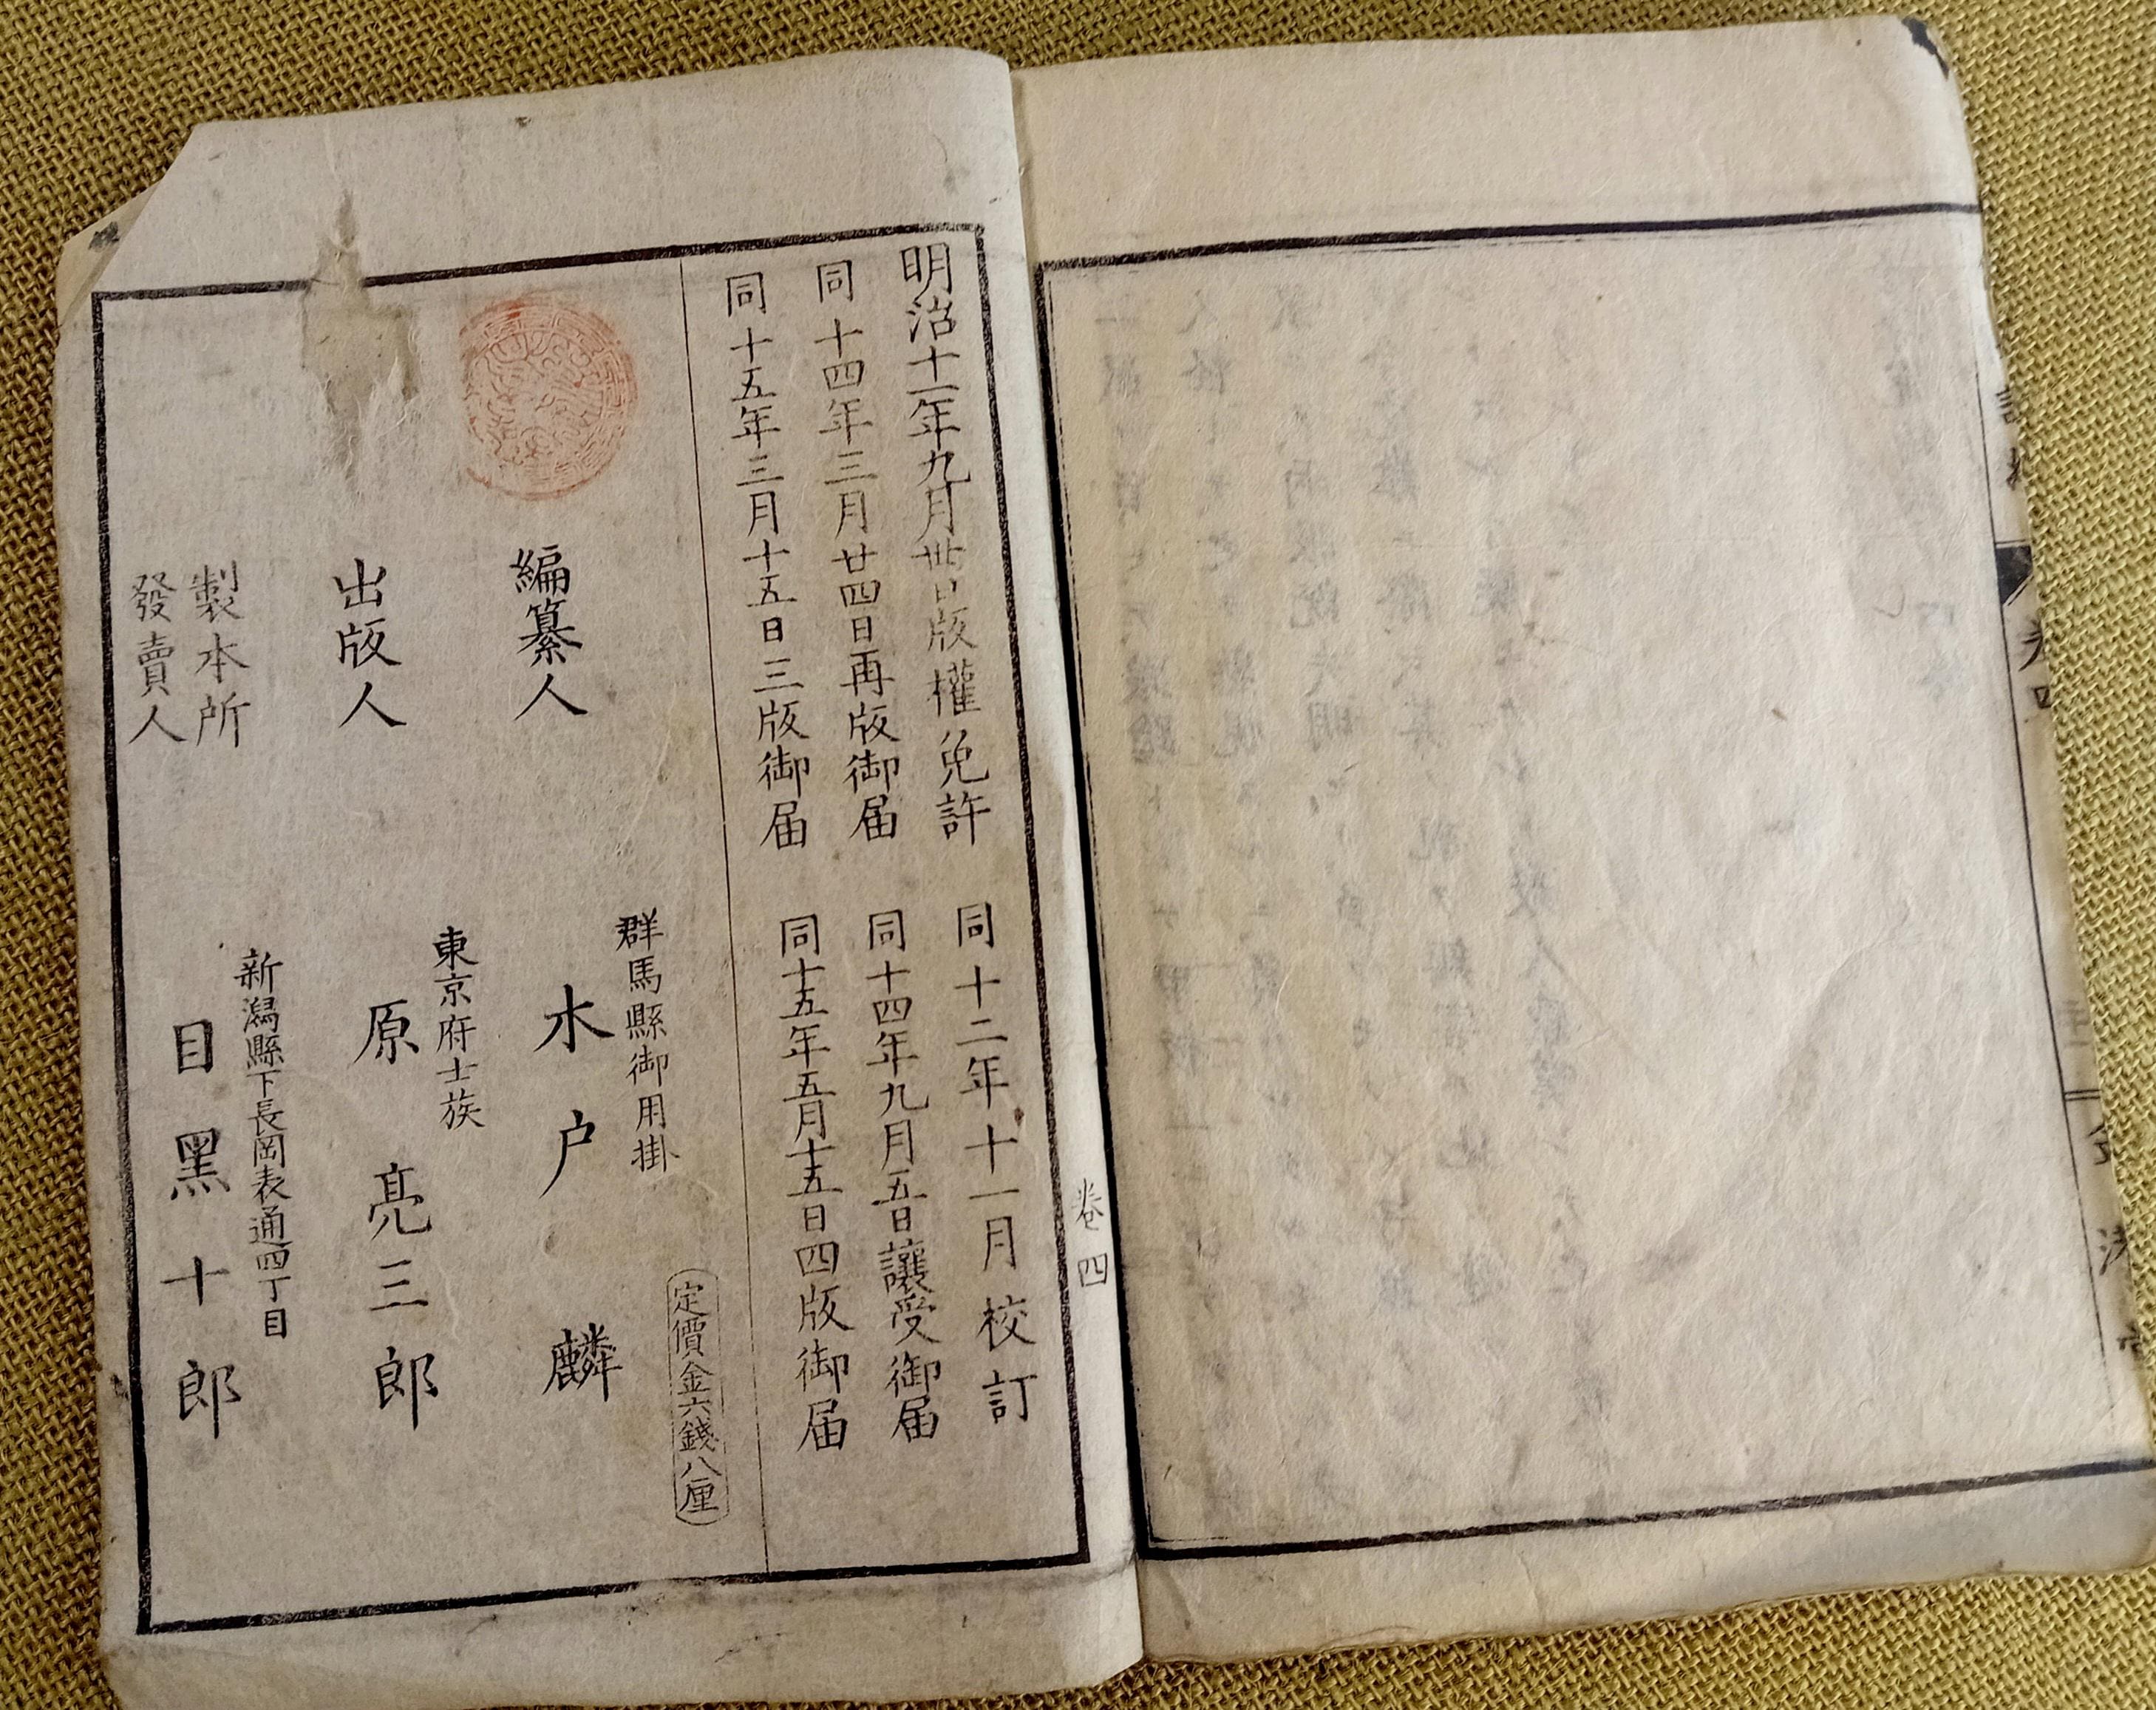 卷四
明治十一年九月卅日版權免許
同十二年十一月校訂
同十四年三月廿四日再版御届
同十四年九月五日讓受御届
同十五年三月十五日三版御届
同十五年五月十五日四版御届
定價金六錢八厘
編纂人
群馬縣御用掛
木戸麟
出版人
東京府士族
原亮三郎
製本所
發賣人
新潟縣下長岡表通四丁目
目黑十郎